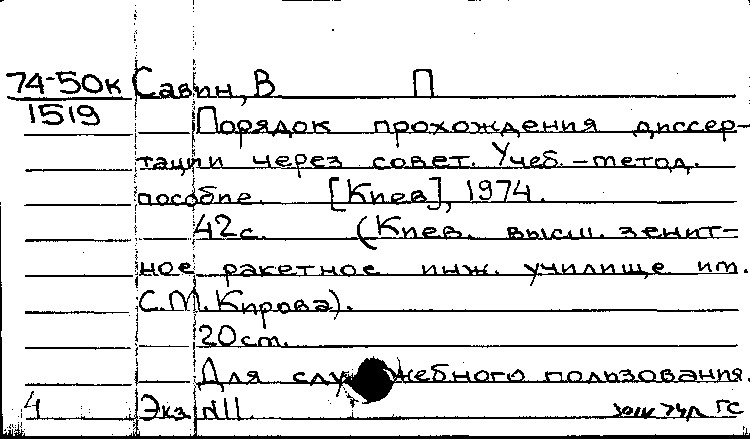 74-50к Савин, В П
1519
Порядок прохождения диссер-
тации через совет. Учеб.-метод.
пособие. [Киев], 1974.
42 с. (Киев. высш. зенит-
ное ракетное инж. училище им.
С.М. Кирова).
20 см.
Для служебного пользования.
4 Экз N11 ГС